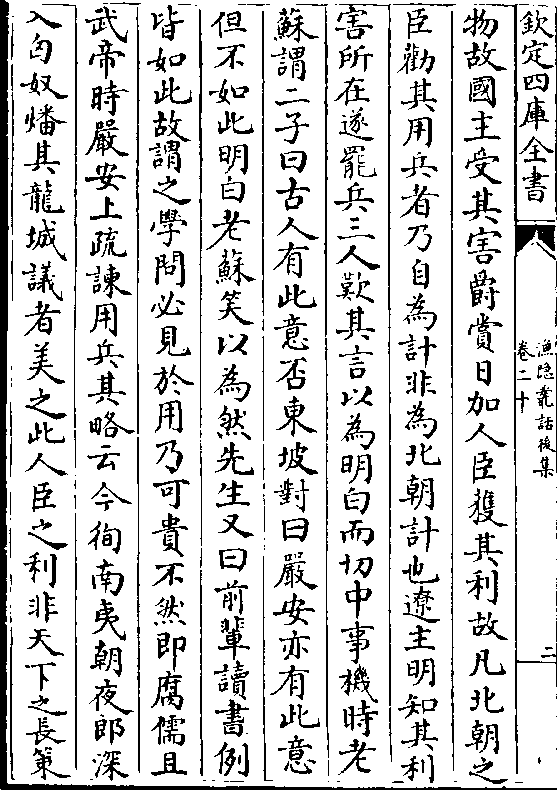 欽定四庫全書
漁隠叢話後集
卷二十
二
物故國主受其害爵賞日加人臣獲其利故凡北朝之
臣勸其用兵者乃自為計非為北朝計也遼主明知其利
害所在遂罷兵三人歎其言以為明白而切中事機時老
蘇謂二子曰古人有此意否東坡對曰嚴安亦有此意
但不如此明白老蘇笑以為然先生又曰前輩讀書例
皆如此故謂之學問必見於用乃可貴不然即腐儒且
武帝時嚴安上疏諫用兵其略云今徇南夷朝夜郎深
入匈奴燔其龍城議者美之此人臣之利非天下之長策